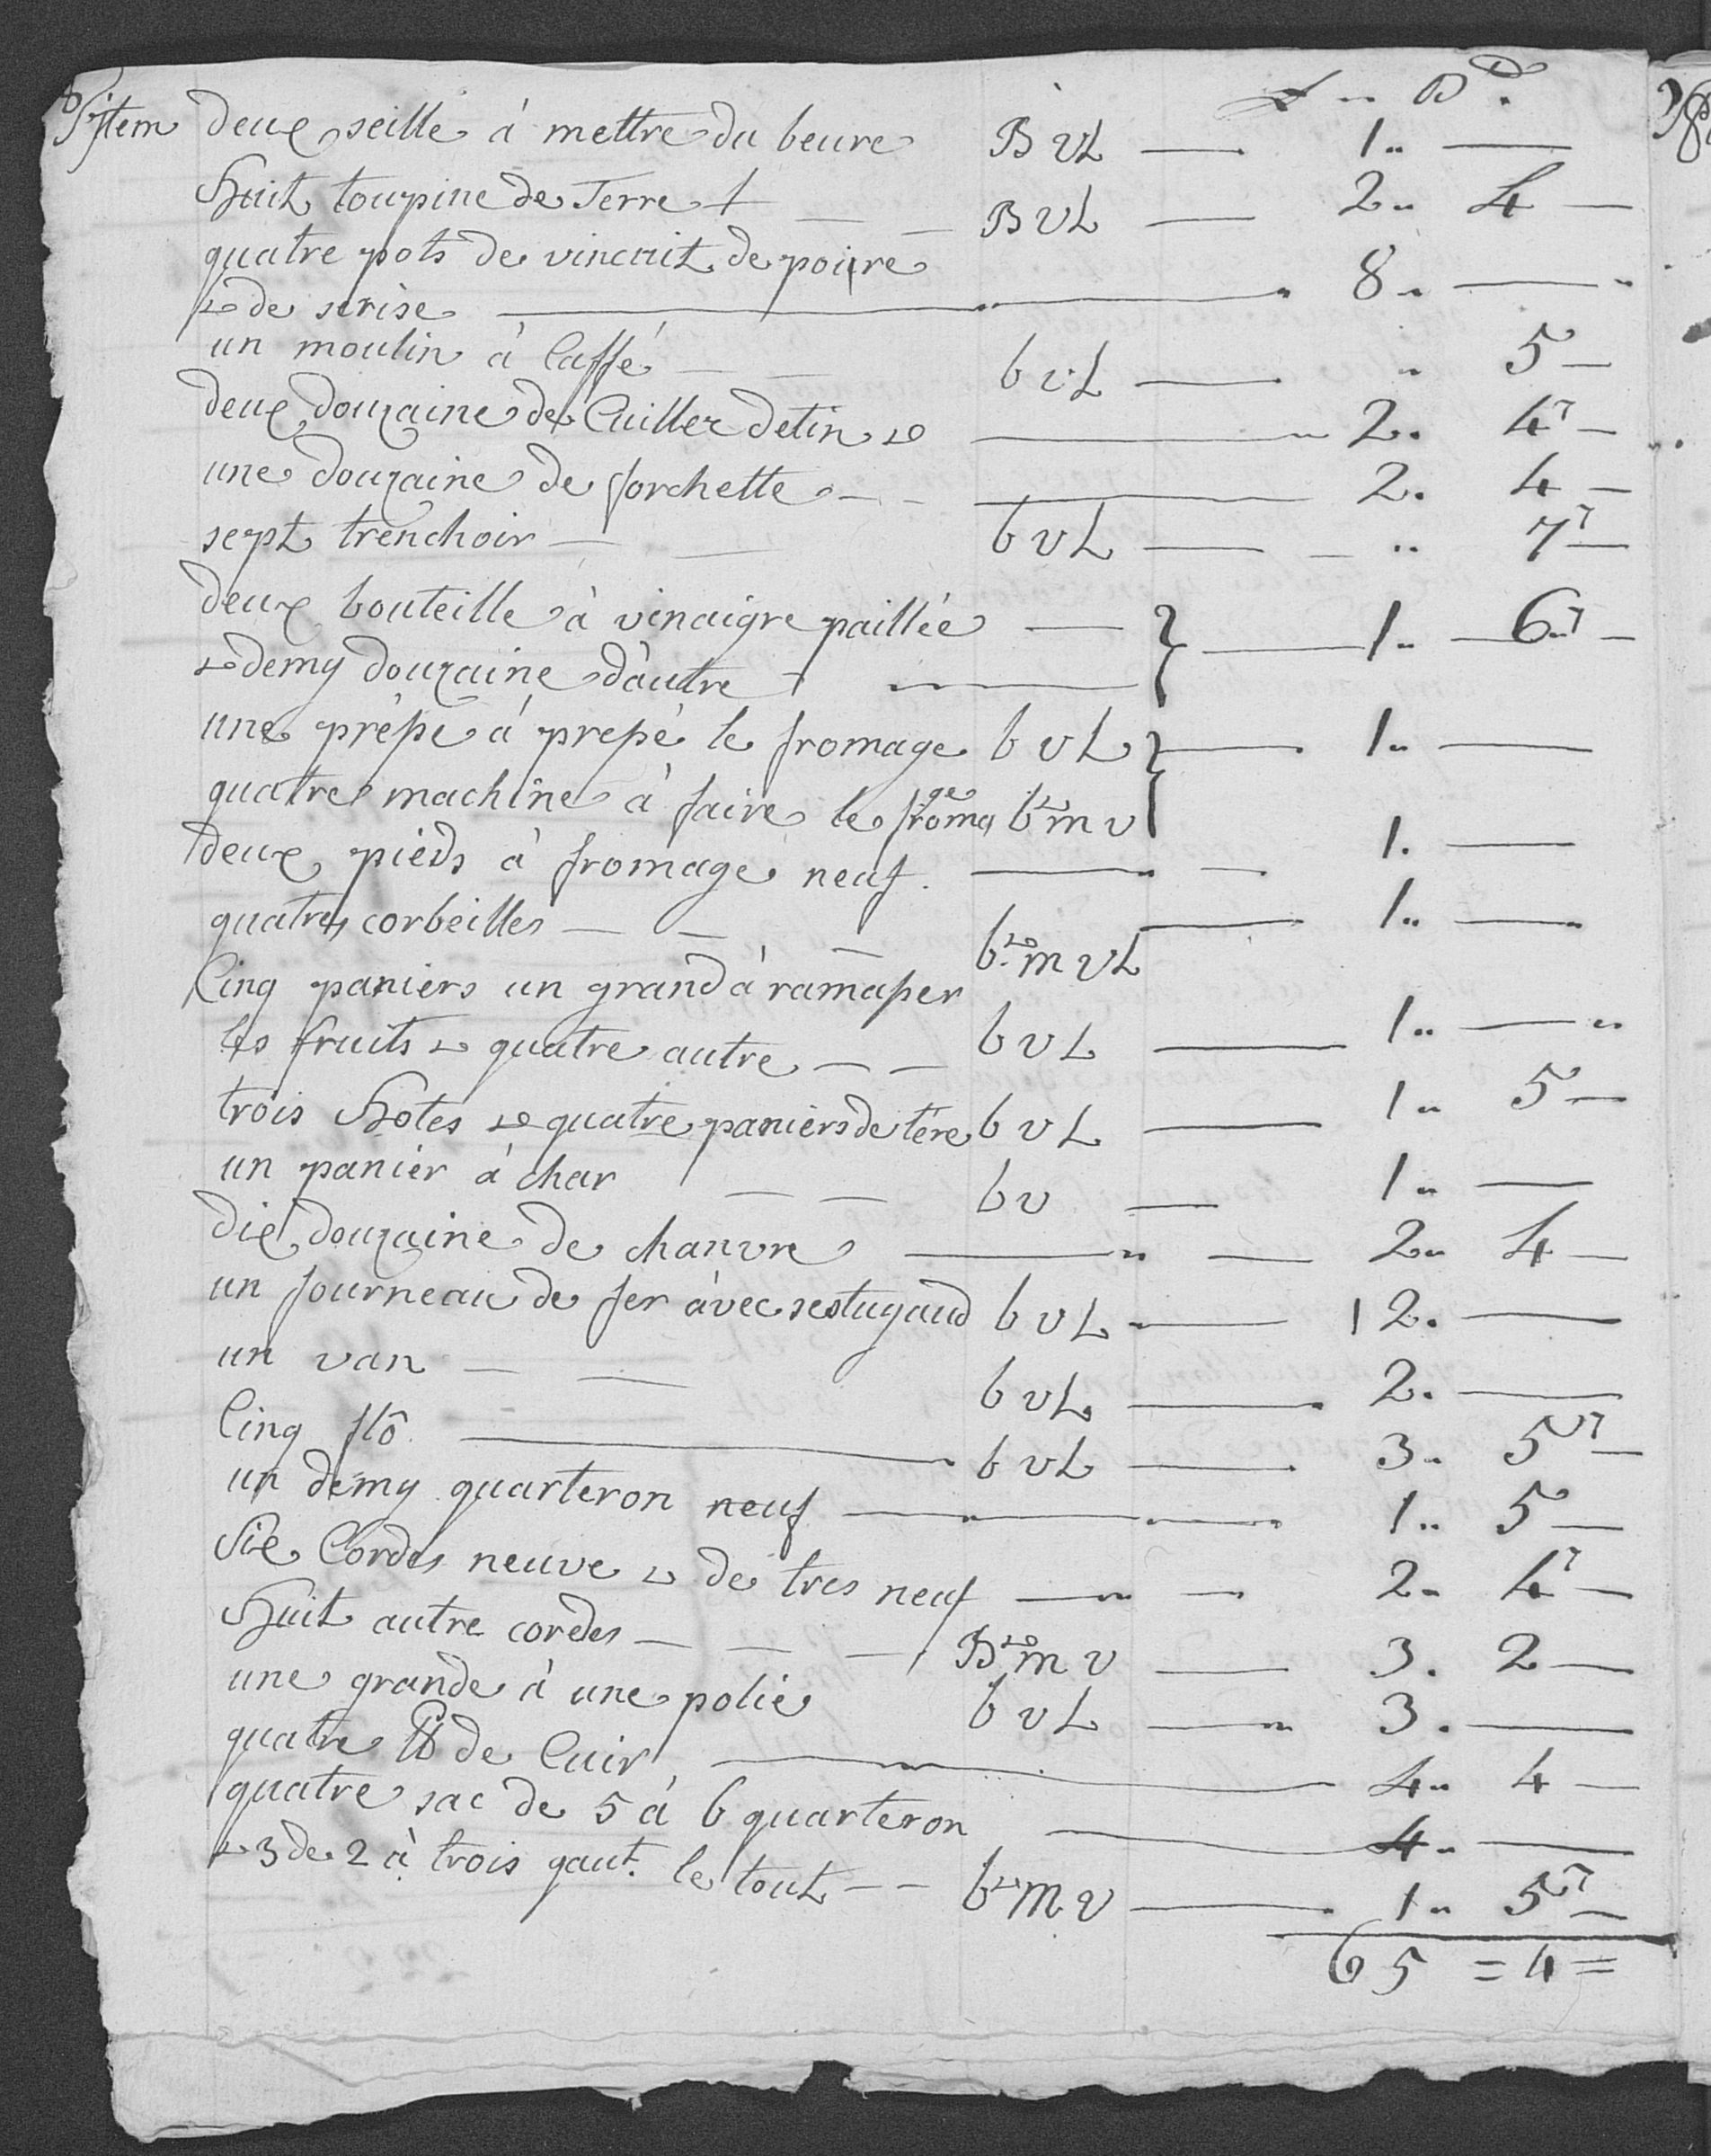 Item deux seille à mettre du beure BVL — 1.. —
Huit toupine de Terre — BVL — 2.. 4 —
quatre pots de vincuit de poire
et de serise — 8.. —
un moulin à Caffé — bvL — .. 5 —
deux douzaine de Cuiller detin et — 2. 4 —
une douzaine de forchette — 2. 4 —
sept trenchoir — bvL — .. 7 —
deux bouteille à vinaigre paillée —
et demy douzaine d'autre — } — 1.. 6 —
une presse à pressé le fromage bvL } — 1.. —
quatre machine à faire le fromage bet m v
deux pieds à fromage neuf. — 1. —
quatres corbeilles — bet m vL — 1.. —
Cinq paniers un grand à ramasser
les fruits et quatre autre — bvL — 1.. —
trois Hotes et quatre paniers de tére bvL — 1.. 5 —
un panier à char — bv — 1.. —
dix douzaine de chanvre — 2.. 4 —
un fourneau de fer àvec ses tuyaud bvL — 12. —
un van — bvL — 2. —
Cinq flô — bvL — 3.. 5 —
un demy quarteron neuf — 1.. 5 —
Six Cordes neuve et de tres neuf — 2.. 4 —
Huit autre cordes — Bet m v — 3. 2 —
une grande à une polie bvL — 3. —
quatre ℔ de Cuir — 4.. 4 —
quatre sac de 5 à 6 quarteron — 4.. —
et 3 de 2 à trois qaut. le tout — bet m v — 1.. 5 —
65 = 4 =